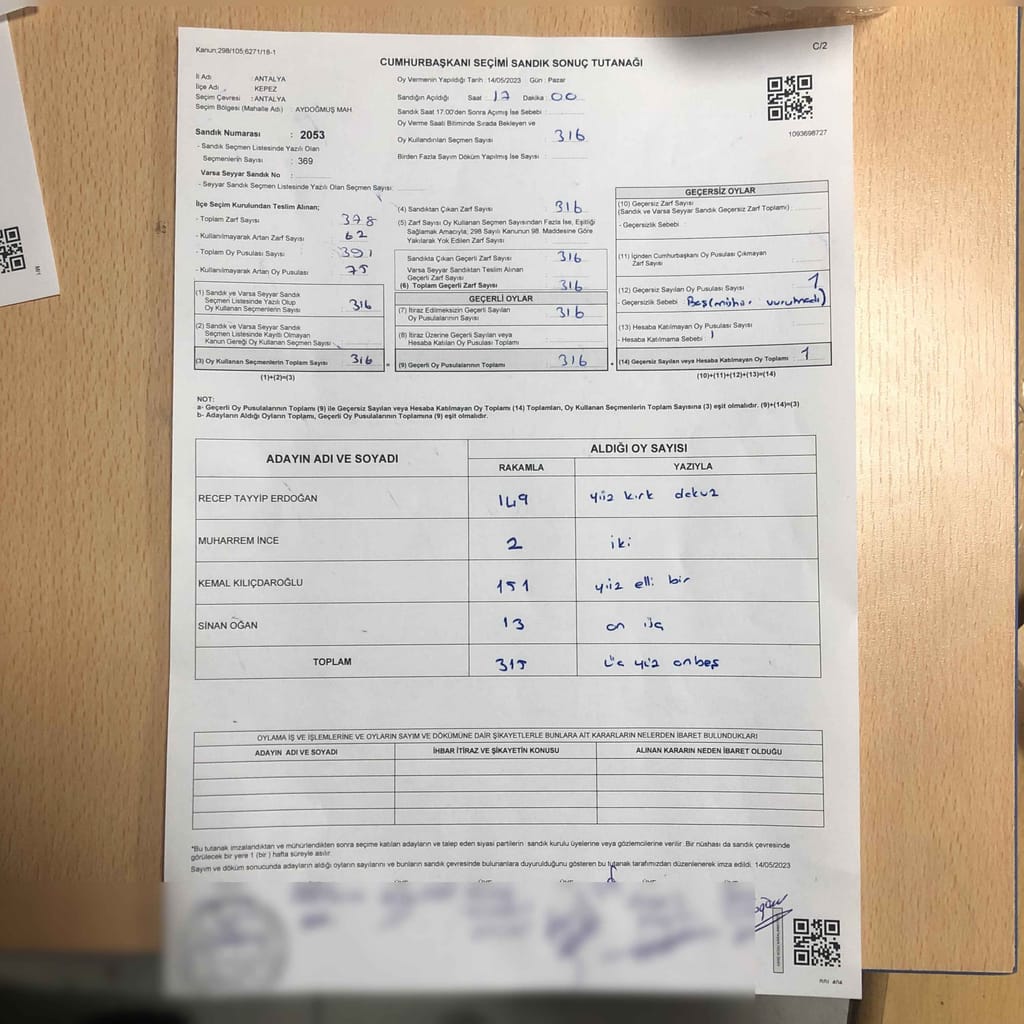 Kanun;298/105;6271/18-1
C/2
CUMHURBAŞKANI SEÇİMİ SANDIK SONUÇ TUTANAĞI
İl Adı : ANTALYA
İlçe Adı : KEPEZ
Seçim Çevresi : ANTALYA
Seçim Bölgesi (Mahalle Adı) : AYDOĞMUŞ MAH
Sandık Numarası : 2053
- Sandık Seçmen Listesinde Yazılı Olan
Seçmenlerin Sayısı : 369
Varsa Seyyar Sandık No :
- Seyyar Sandık Seçmen Listesinde Yazılı Olan Seçmen Sayısı:
Oy Vermenin Yapıldığı Tarih :14/05/2023 Gün : Pazar
Sandığın Açıldığı Saat : 17 Dakika : 00
Sandık Saat 17.00'den Sonra Açımış İse Sebebi :
Oy Verme Saati Bitiminde Sırada Bekleyen ve
Oy Kullandırılan Seçmen Sayısı : 316
Birden Fazla Sayım Döküm Yapılmış İse Sayısı :
1093698727
İlçe Seçim Kurulundan Teslim Alınan;
- Toplam Zarf Sayısı : 378
- Kullanılmayarak Artan Zarf Sayısı : 62
- Toplam Oy Pusulası Sayısı : 391
- Kullanılmayarak Artan Oy Pusulası : 75
(1) Sandık ve Varsa Seyyar Sandık
Seçmen Listesinde Yazılı Olup
Oy Kullanan Seçmenlerin Sayısı : 316
(2) Sandık ve Varsa Seyyar Sandık
Seçmen Listesinde Kayıtlı Olmayan
Kanun Gereği Oy Kullanan Seçmen Sayısı :
(3) Oy Kullanan Seçmenlerin Toplam Sayısı : 316
(1)+(2)=(3)
(4) Sandıktan Çıkan Zarf Sayısı : 316
(5) Zarf Sayısı Oy Kullanan Seçmen Sayısından Fazla İse, Eşitliği
Sağlamak Amacıyla, 298 Sayılı Kanunun 98. Maddesine Göre
Yakılarak Yok Edilen Zarf Sayısı :
Sandıkta Çıkan Geçerli Zarf Sayısı : 316
Varsa Seyyar Sandıktan Teslim Alınan
Geçerli Zarf Sayısı :
(6) Toplam Geçerli Zarf Sayısı : 316
GEÇERLİ OYLAR
(7) İtiraz Edilmeksizin Geçerli Sayılan
Oy Pusulasının Sayısı : 316
(8) İtiraz Üzerine Geçerli Sayılan veya
Hesaba Katılan Oy Pusulası Toplamı :
(9) Geçerli Oy Pusulalarının Toplamı : 316
GEÇERSİZ OYLAR
(10) Geçersiz Zarf Sayısı
(Sandık ve Varsa Seyyar Sandık Geçersiz Zarf Toplamı) :
- Geçersizlik Sebebi :
(11) İçinden Cumhurbaşkanı Oy Pusulası Çıkmayan
Zarf Sayısı :
(12) Geçersiz Sayılan Oy Pusulası Sayısı : 1
- Geçersizlik Sebebi : vurulmadı)
(13) Hesaba Katılmayan Oy Pusulası Sayısı :
- Hesaba Katılmama Sebebi :
(14) Geçersiz Sayılan veya Hesaba Katılmayan Oy Toplamı : 1
(10)+(11)+(12)+(13)=(14)
NOT:
a- Geçerli Oy Pusulalarının Toplamı (9) ile Geçersiz Sayılan veya Hesaba Katılmayan Oy Toplamı (14) Toplamları, Oy Kullanan Seçmenlerin Toplam Sayısına (3) eşit olmalıdır. (9)+(14)=(3)
b- Adayların Aldığı Oyların Toplamı, Geçerli Oy Pusulalarının Toplamına (9) eşit olmalıdır.
ADAYIN ADI VE SOYADI
ALDIĞI OY SAYISI
RAKAMLA YAZIYLA
RECEP TAYYİP ERDOĞAN 149 yüz kırk dokuz
MUHARREM İNCE 2 iki
KEMAL KILIÇDAROĞLU 151 yüz elli bir
SİNAN OĞAN 13 on üç
TOPLAM 315 üç yüz onbeş
OYLAMA İŞ VE İŞLEMLERİNE VE OYLARIN SAYIM VE DÖKÜMÜNE DAİR ŞİKAYETLERLE BUNLARA AİT KARARLARIN NELERDEN İBARET BULUNDUKLARI
ADAYIN ADI VE SOYADI İHBAR İTİRAZ VE ŞİKAYETİN KONUSU ALINAN KARARIN NEDEN İBARET OLDUĞU
*Bu tutanak imzalandıktan ve mühürlendikten sonra seçime katılan adayların ve talep eden siyasi partilerin sandık kurulu üyelerine veya gözlemcilerine verilir .Bir nüshası da sandık çevresinde
görülecek bir yere 1 (bir ) hafta süreyle asılır.
Sayım ve döküm sonucunda adayların aldığı oyların sayılarını ve bunların sandık çevresinde bulunanlara duyurulduğunu gösteren bu tutanak tarafımızdan düzenlenerek imza edildi. 14/05/2023